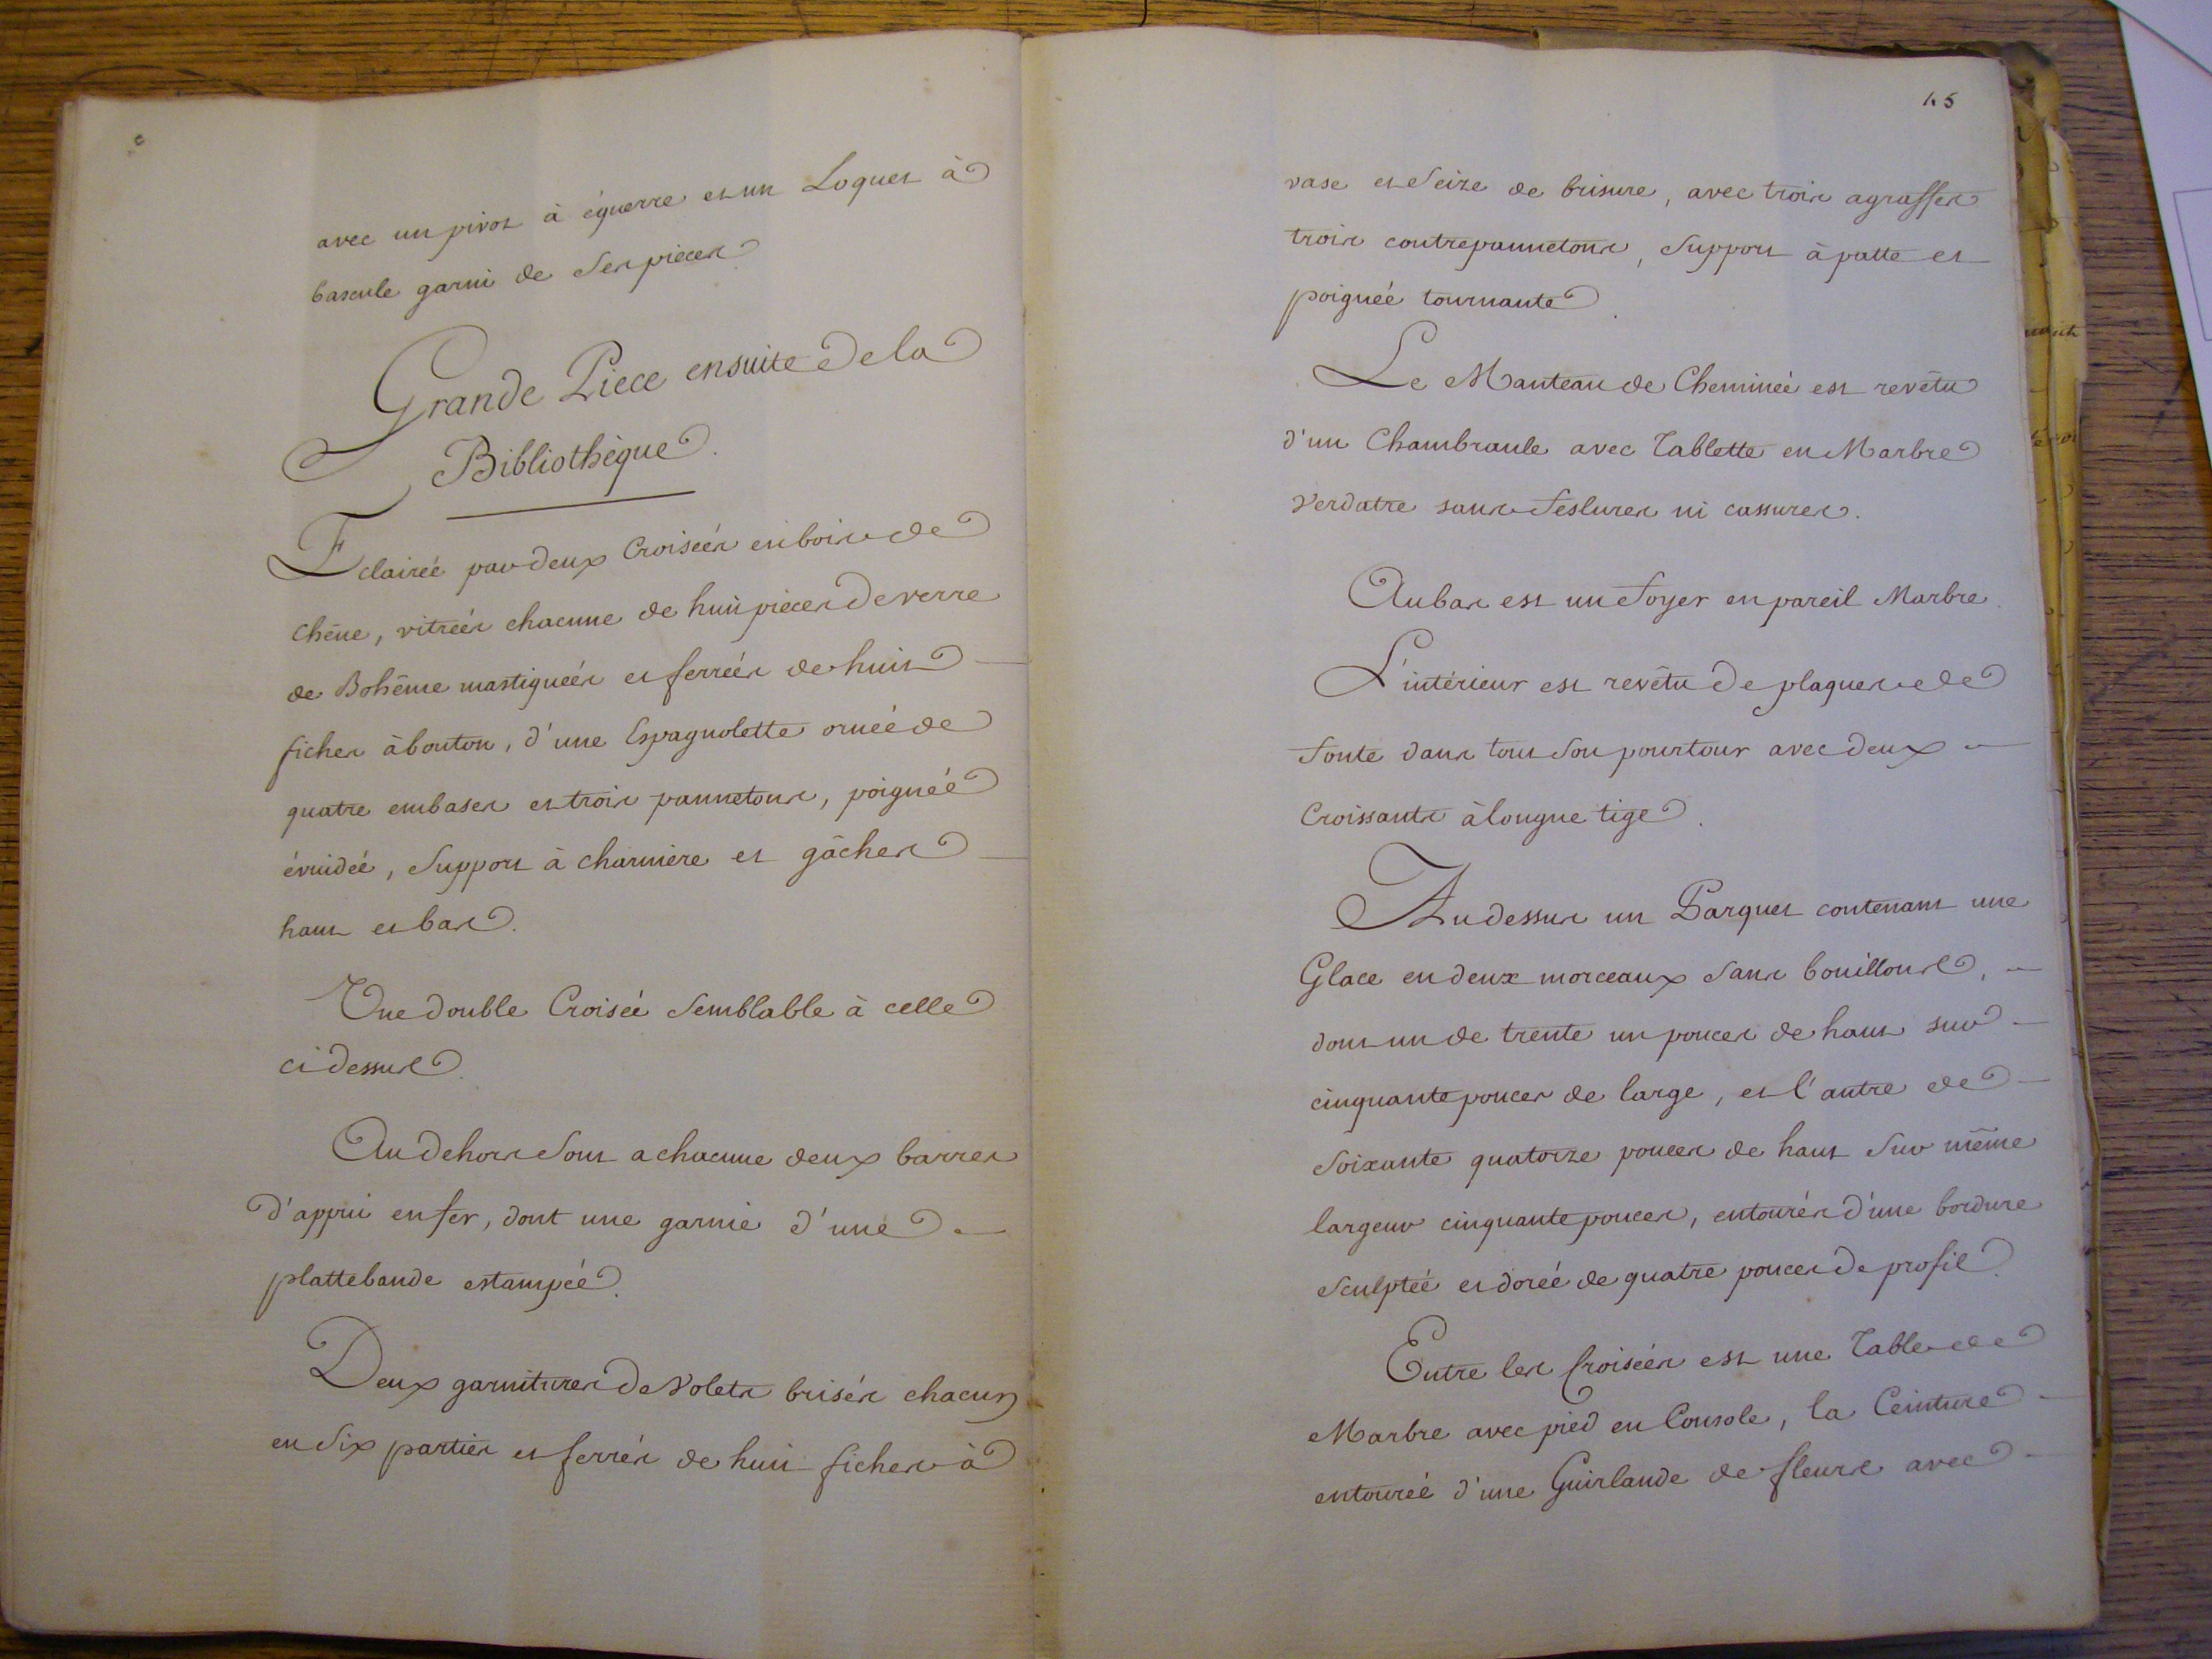 avec un pivot à équerre et un Loquet à
bascule garni de Ses pieces
Grande Piece ensuite de la
Bibliothèque.
Eclairée par deux Croisées en bois de
chêne, vitrées chacune de huit pieces de verre
de Bohême mastiquées et ferrées de huit
fiches à bouton, d'une Espagnolette ornée de
quatre embases et trois pannetons, poignée
évuidée, Support à charnière et gâches
haut et bas.
Une double Croisée Semblable à celle
ci dessus.
Au dehors Sont a chacune deux barres
d'appui en fer, dont une garnie d'une
plattebande estampée.
Deux garnitures de Volets brisés chacun
en Six parties et ferrés de huit fiches à
45
vase et Seize de brisure, avec trois agraffes
trois contrepannetons, Support à patte et
poignée tournante.
Le Manteau de Cheminée est revêtu
d'un Chambranle avec Tablette en Marbre
Verdatre sans feslures ni cassures.
Au bas est un foyer en pareil Marbre.
L'intérieur est revêtu de plaques de
fonte dans tout Son pourtour avec deux
Croissants à longue tige.
Au dessus un Parquet contenant une
Glace en deux morceaux Sans bouillons,
dont un de trente un pouces de haut sur
cinquante pouces de large, et l'autre de
Soixante quatorze pouces de haut Sur même
largeur cinquante pouces, entourés d'une bordure
Sculptée et dorée de quatre pouces de profil.
Entre les Croisées est une Table de
Marbre avec pied en Console, la Ceinture
entourée d'une Guirlande de fleurs avec